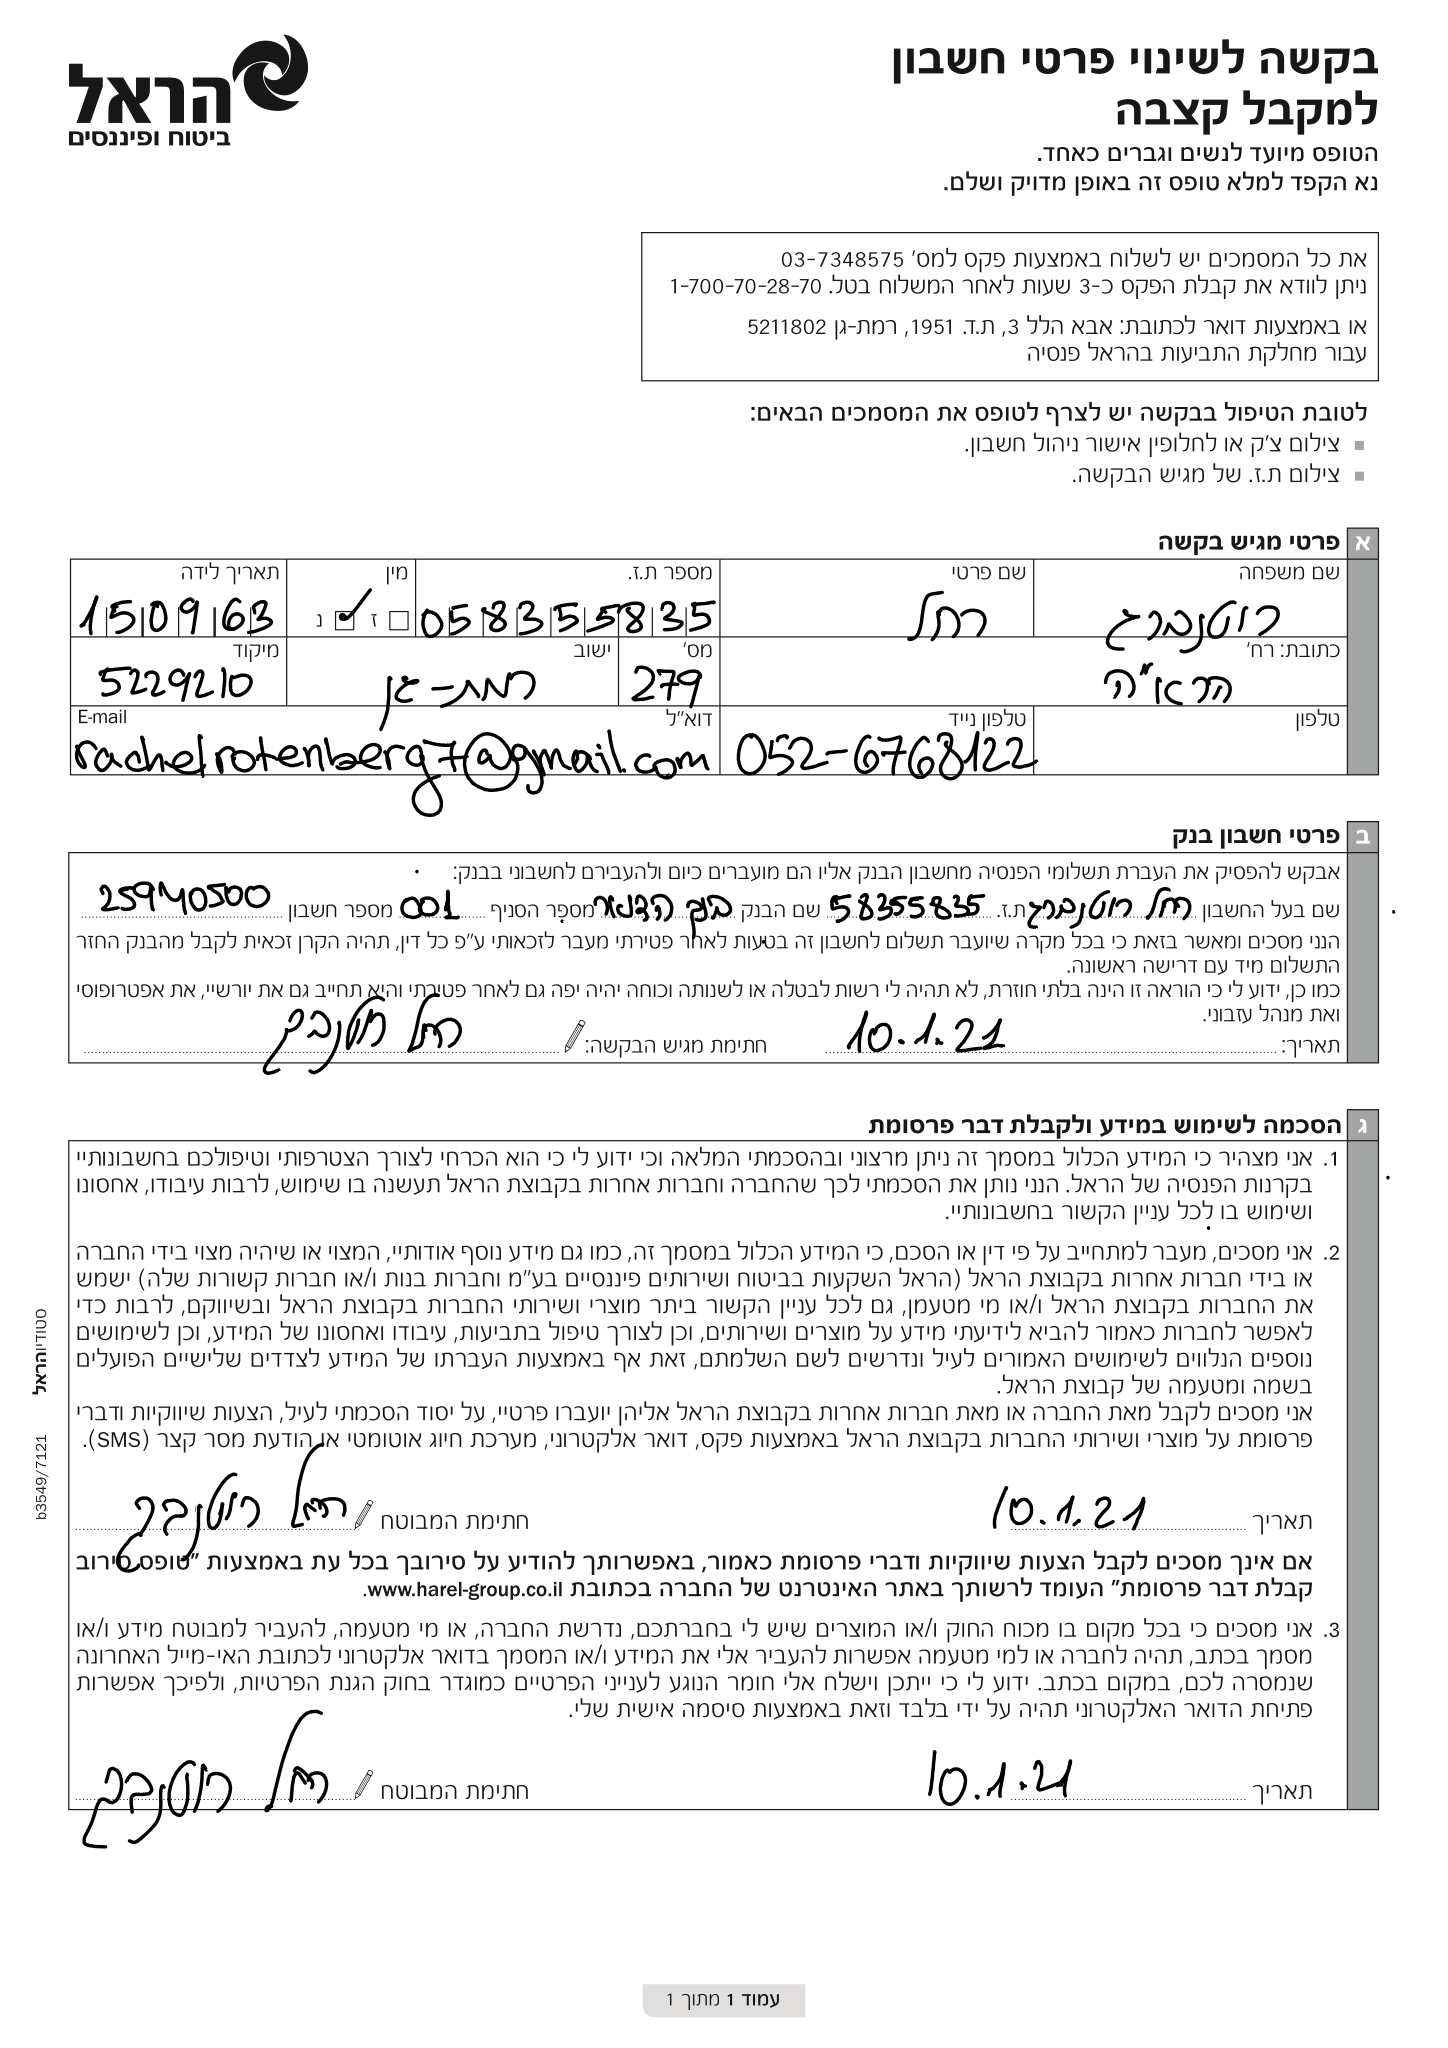 הראל
ביטוח ופיננסים
בקשה לשינוי פרטי חשבון
למקבל קצבה
הטופס מיועד לנשים וגברים כאחד.
נא הקפד למלא טופס זה באופן מדויק ושלם.
את כל המסמכים יש לשלוח באמצעות פקס למס' 03-7348575
ניתן לוודא את קבלת הפקס כ-3 שעות לאחר המשלוח בטל. 1-700-70-28-70
או באמצעות דואר לכתובת: אבא הלל 3, ת.ד. 1951, רמת-גן 5211802
עבור מחלקת התביעות בהראל פנסיה
לטובת הטיפול בבקשה יש לצרף לטופס את המסמכים הבאים:
צילום צ'ק או לחלופין אישור ניהול חשבון.
צילום ת.ז. של מגיש הבקשה.
א פרטי מגיש בקשה
שם משפחה שם פרטי מספר ת.ז. מין תאריך לידה
רוטנברג רחל 058355835 ז נ 150963
כתובת: רח' מס' ישוב מיקוד
הרא"ה 279 רמת-גן 5229210
טלפון טלפון נייד דוא"ל E-mail
052-6768122 rachelrotenberg7@gmail.com
ב פרטי חשבון בנק
אבקש להפסיק את העברת תשלומי הפנסיה מחשבון הבנק אליו הם מועברים כיום ולהעבירם לחשבוני בבנק:
שם בעל החשבון רחל רוטנברג ת.ז. 58355835 שם הבנק בנק הדואר מספר הסניף 001 מספר חשבון 25940500
הנני מסכים ומאשר בזאת כי בכל מקרה שיועבר תשלום לחשבון זה בטעות לאחר פטירתי מעבר לזכאותי ע"פ כל דין, תהיה הקרן זכאית לקבל מהבנק החזר
התשלום מיד עם דרישה ראשונה.
כמו כן, ידוע לי כי הוראה זו הינה בלתי חוזרת, לא תהיה לי רשות לבטלה או לשנותה וכוחה יהיה יפה גם לאחר פטירתי והיא תחייב גם את יורשיי, את אפטרופוסי
ואת מנהל עזבוני.
תאריך: 10.1.21 חתימת מגיש הבקשה: רחל רוטנברג
ג הסכמה לשימוש במידע ולקבלת דבר פרסומת
1. אני מצהיר כי המידע הכלול במסמך זה ניתן מרצוני ובהסכמתי המלאה וכי ידוע לי כי הוא הכרחי לצורך הצטרפותי וטיפולכם בחשבונותיי
בקרנות הפנסיה של הראל. הנני נותן את הסכמתי לכך שהחברה וחברות אחרות בקבוצת הראל תעשנה בו שימוש, לרבות עיבודו, אחסונו
ושימוש בו לכל עניין הקשור בחשבונותיי.
2. אני מסכים, מעבר למתחייב על פי דין או הסכם, כי המידע הכלול במסמך זה, כמו גם מידע נוסף אודותיי, המצוי או שיהיה מצוי בידי החברה
או בידי חברות אחרות בקבוצת הראל (הראל השקעות בביטוח ושירותים פיננסיים בע"מ וחברות בנות ו/או חברות קשורות שלה) ישמש
את החברות בקבוצת הראל ו/או מי מטעמן, גם לכל עניין הקשור ביתר מוצרי ושירותי החברות בקבוצת הראל ובשיווקם, לרבות כדי
לאפשר לחברות כאמור להביא לידיעתי מידע על מוצרים ושירותים, וכן לצורך טיפול בתביעות, עיבודו ואחסונו של המידע, וכן לשימושים
נוספים הנלווים לשימושים האמורים לעיל ונדרשים לשם השלמתם, זאת אף באמצעות העברתו של המידע לצדדים שלישיים הפועלים
בשמה ומטעמה של קבוצת הראל.
אני מסכים לקבל מאת החברה או מאת חברות אחרות בקבוצת הראל אליהן יועברו פרטיי, על יסוד הסכמתי לעיל, הצעות שיווקיות ודברי
פרסומת על מוצרי ושירותי החברות בקבוצת הראל באמצעות פקס, דואר אלקטרוני, מערכת חיוג אוטומטי או הודעת מסר קצר (SMS).
תאריך 10.1.21 חתימת המבוטח רחל רוטנברג
אם אינך מסכים לקבל הצעות שיווקיות ודברי פרסומת כאמור, באפשרותך להודיע על סירובך בכל עת באמצעות "טופס סירוב
קבלת דבר פרסומת" העומד לרשותך באתר האינטרנט של החברה בכתובת www.harel-group.co.il.
3. אני מסכים כי בכל מקום בו מכוח החוק ו/או המוצרים שיש לי בחברתכם, נדרשת החברה, או מי מטעמה, להעביר למבוטח מידע ו/או
מסמך בכתב, תהיה לחברה או למי מטעמה אפשרות להעביר אלי את המידע ו/או המסמך בדואר אלקטרוני לכתובת האי-מייל האחרונה
שנמסרה לכם, במקום בכתב. ידוע לי כי ייתכן וישלח אלי חומר הנוגע לענייני הפרטיים כמוגדר בחוק הגנת הפרטיות, ולפיכך אפשרות
פתיחת הדואר האלקטרוני תהיה על ידי בלבד וזאת באמצעות סיסמה אישית שלי.
תאריך 10.1.21 חתימת המבוטח רחל רוטנברג
סטודיוהראל b3549/7121
עמוד 1 מתוך 1